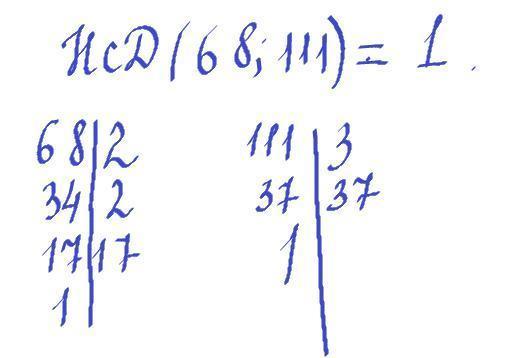 НСД(68; 111) = 1.
68|2 111|3
34|2 37|37
17|17 1|
1|